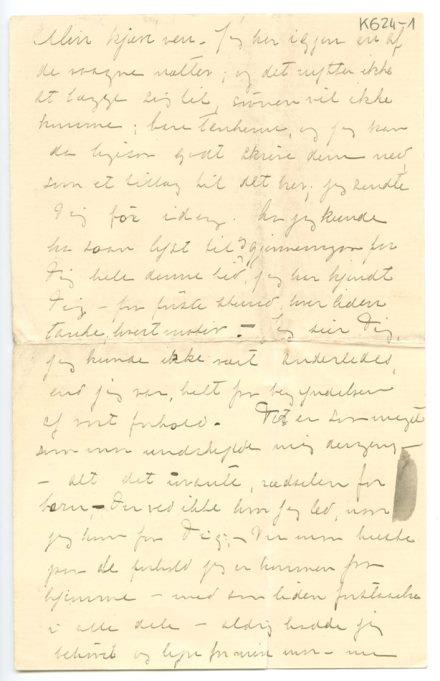 K624-1
Min kjære ven. Jeg har igjen en af
de vaagne nætter; og det nytter ikke
at lægge sig til, søvnen vil ikke
komme; bare tankerne, og jeg kan
da ligesom godt skrive dem ned,
som et tillæg til det brev, jeg sendte
Dig før idag. Aa jeg kunde
ha saan lyst til å gjennemgaa for
Dig hele denne tid, jeg har kjendt
Dig – fra første stund, hver liden
tanke, hvert motiv. – Jeg sier Dig,
jeg kunde ikke vært anderledes,
end jeg var, helt fra begyndelsen
af vort forhold. Det er saa meget
som man undskylde mig dengang –
– alt det uvante, rædselen for
børn, – Du ved ikke hvor jeg led, naar
jeg kom fra Dig; – Du maa huske
paa de forhold jeg er kommen fra
hjemme – med saa liden forstaaelse
i alle dele – aldrig hadde jeg
behøvet og lyve for min mor –